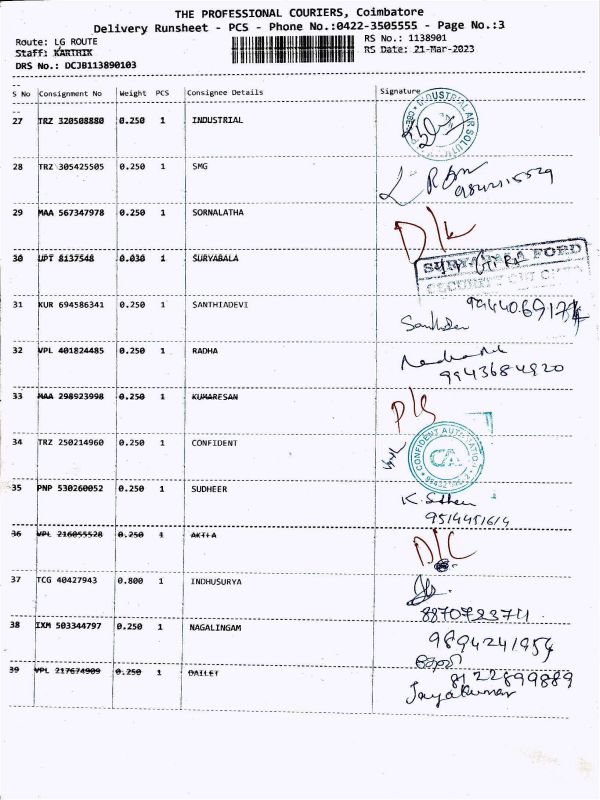 THE PROFESSIONAL COURIERS, Coimbatore
Delivery Runsheet - PCS - Phone No.:0422-3505555 - Page No.:3
Route: LG ROUTE
RS No.: 1138901
Staff: KARTHIK
RS Date: 21-Mar-2023
DRS No.: DCJB113890103
S No Consignment No Weight PCS Consignee Details Signature
27 TRZ 320508880 0.250 1 INDUSTRIAL
INDUSTRIAL AIR SOLUTION
28 TRZ 305425505 0.250 1 SMG
29 MAA 567347978 0.250 1 SORNALATHA D/L
30 UPT 8137548 0.030 1 SURYABALA
SURYABALA FORD
31 KUR 694586341 0.250 1 SANTHIADEVI
32 VPL 401824485 0.250 1 RADHA
9943684920
33 MAA 298923998 0.250 1 KUMARESAN
34 TRZ 250214960 0.250 1 CONFIDENT
CONFIDENT AUTOMATION
CA
35 PNP 530260052 0.250 1 SUDHEER
9514451614
36 VPL 216055528 0.250 1 AKTIA D/C
37 TCG 40427943 0.800 1 INDHUSURYA
8870723711
38 IXM 503344797 0.250 1 NAGALINGAM
9894241954
39 VPL 217674909 0.250 1 DAILET
8122899889
Jayakumar